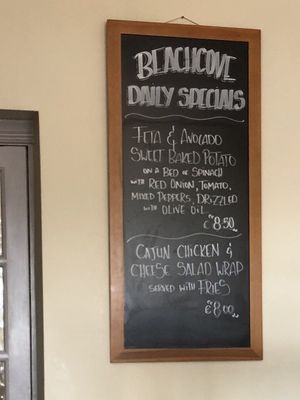 BEACHCOVE
DAILY SPECIALS
FETA & AVOCADO
SWEET BAKED POTATO
ON A BED OF SPINACH
WITH RED ONION, TOMATO,
MIXED PEPPERS, DRIZZLED
WITH OLIVE OIL
€8.50
CAJUN CHICKEN &
CHEESE SALAD WRAP
SERVED WITH FRIES
€8.00